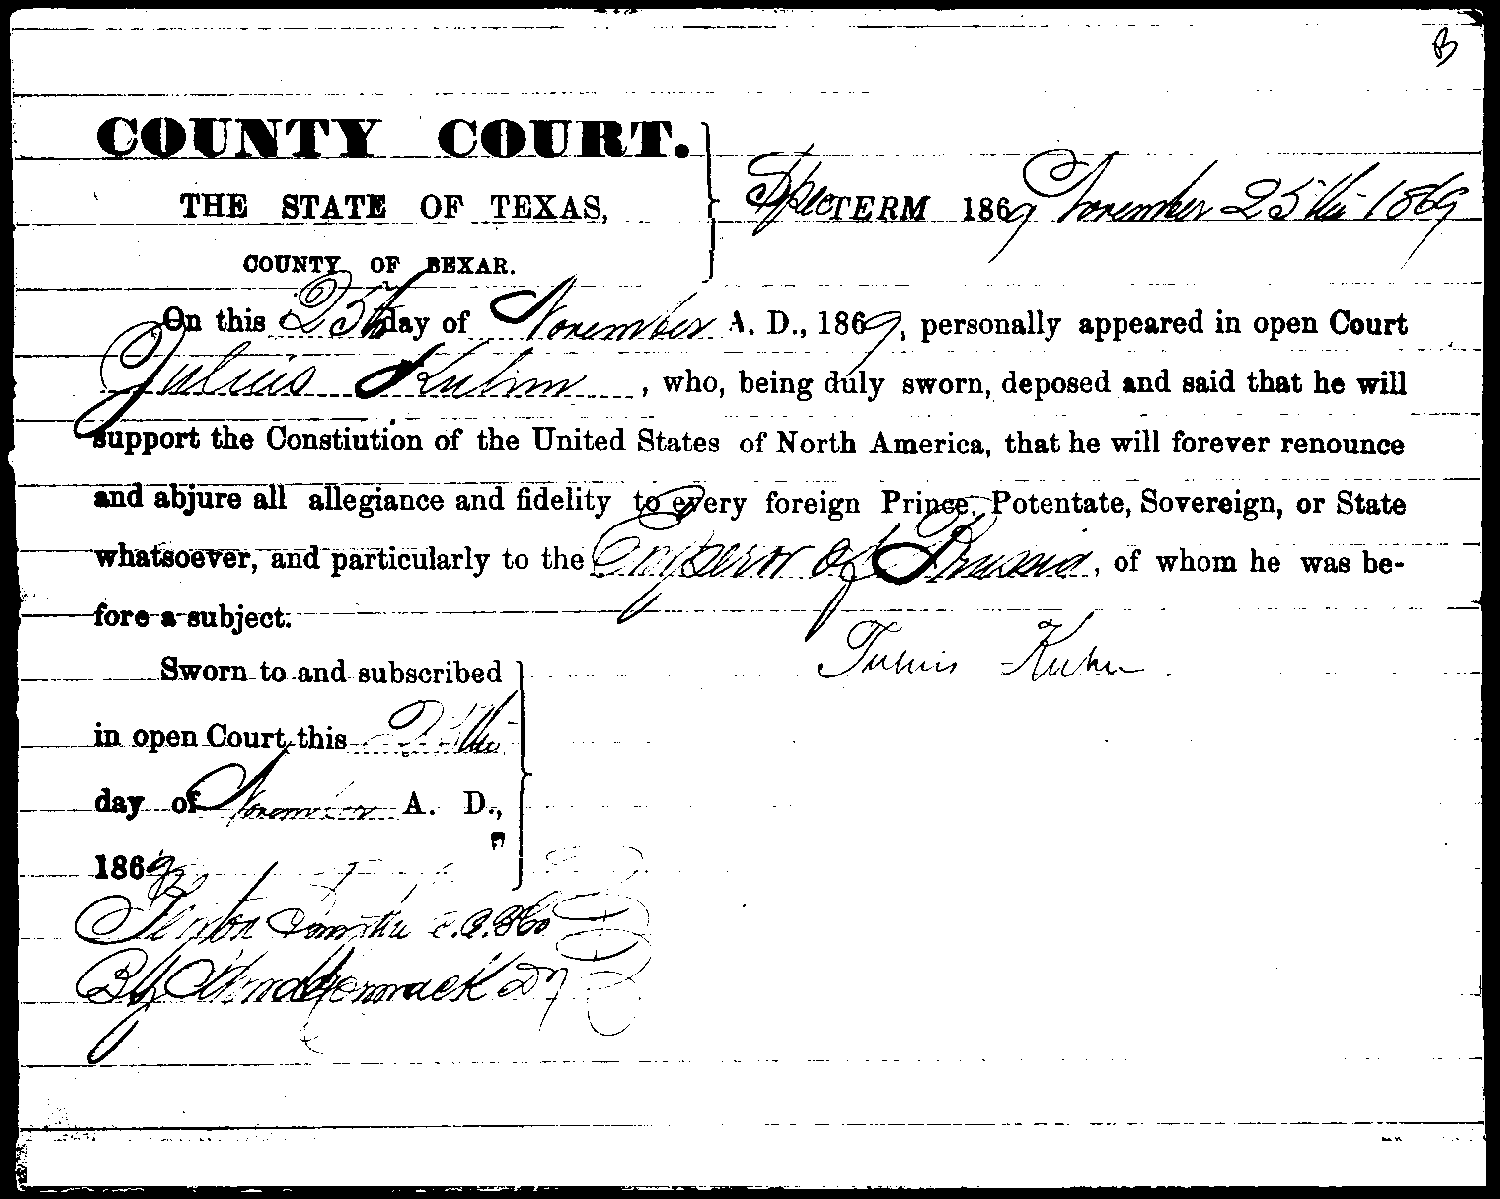 B
COUNTY COURT.
THE STATE OF TEXAS,
COUNTY OF BEXAR.
Spec TERM 1869 November 25th 1869
On this 25th day of November A. D., 1869, personally appeared in open Court
Julius Kuhn, who, being duly sworn, deposed and said that he will
support the Constiution of the United States of North America, that he will forever renounce
and abjure all allegiance and fidelity to every foreign Prince, Potentate, Sovereign, or State
whatsoever, and particularly to the Emperor of Prussia, of whom he was be-
fore a subject.
Julius Kuhn
Sworn to and subscribed
in open Court this 25th
day of November A. D.,
1869
By